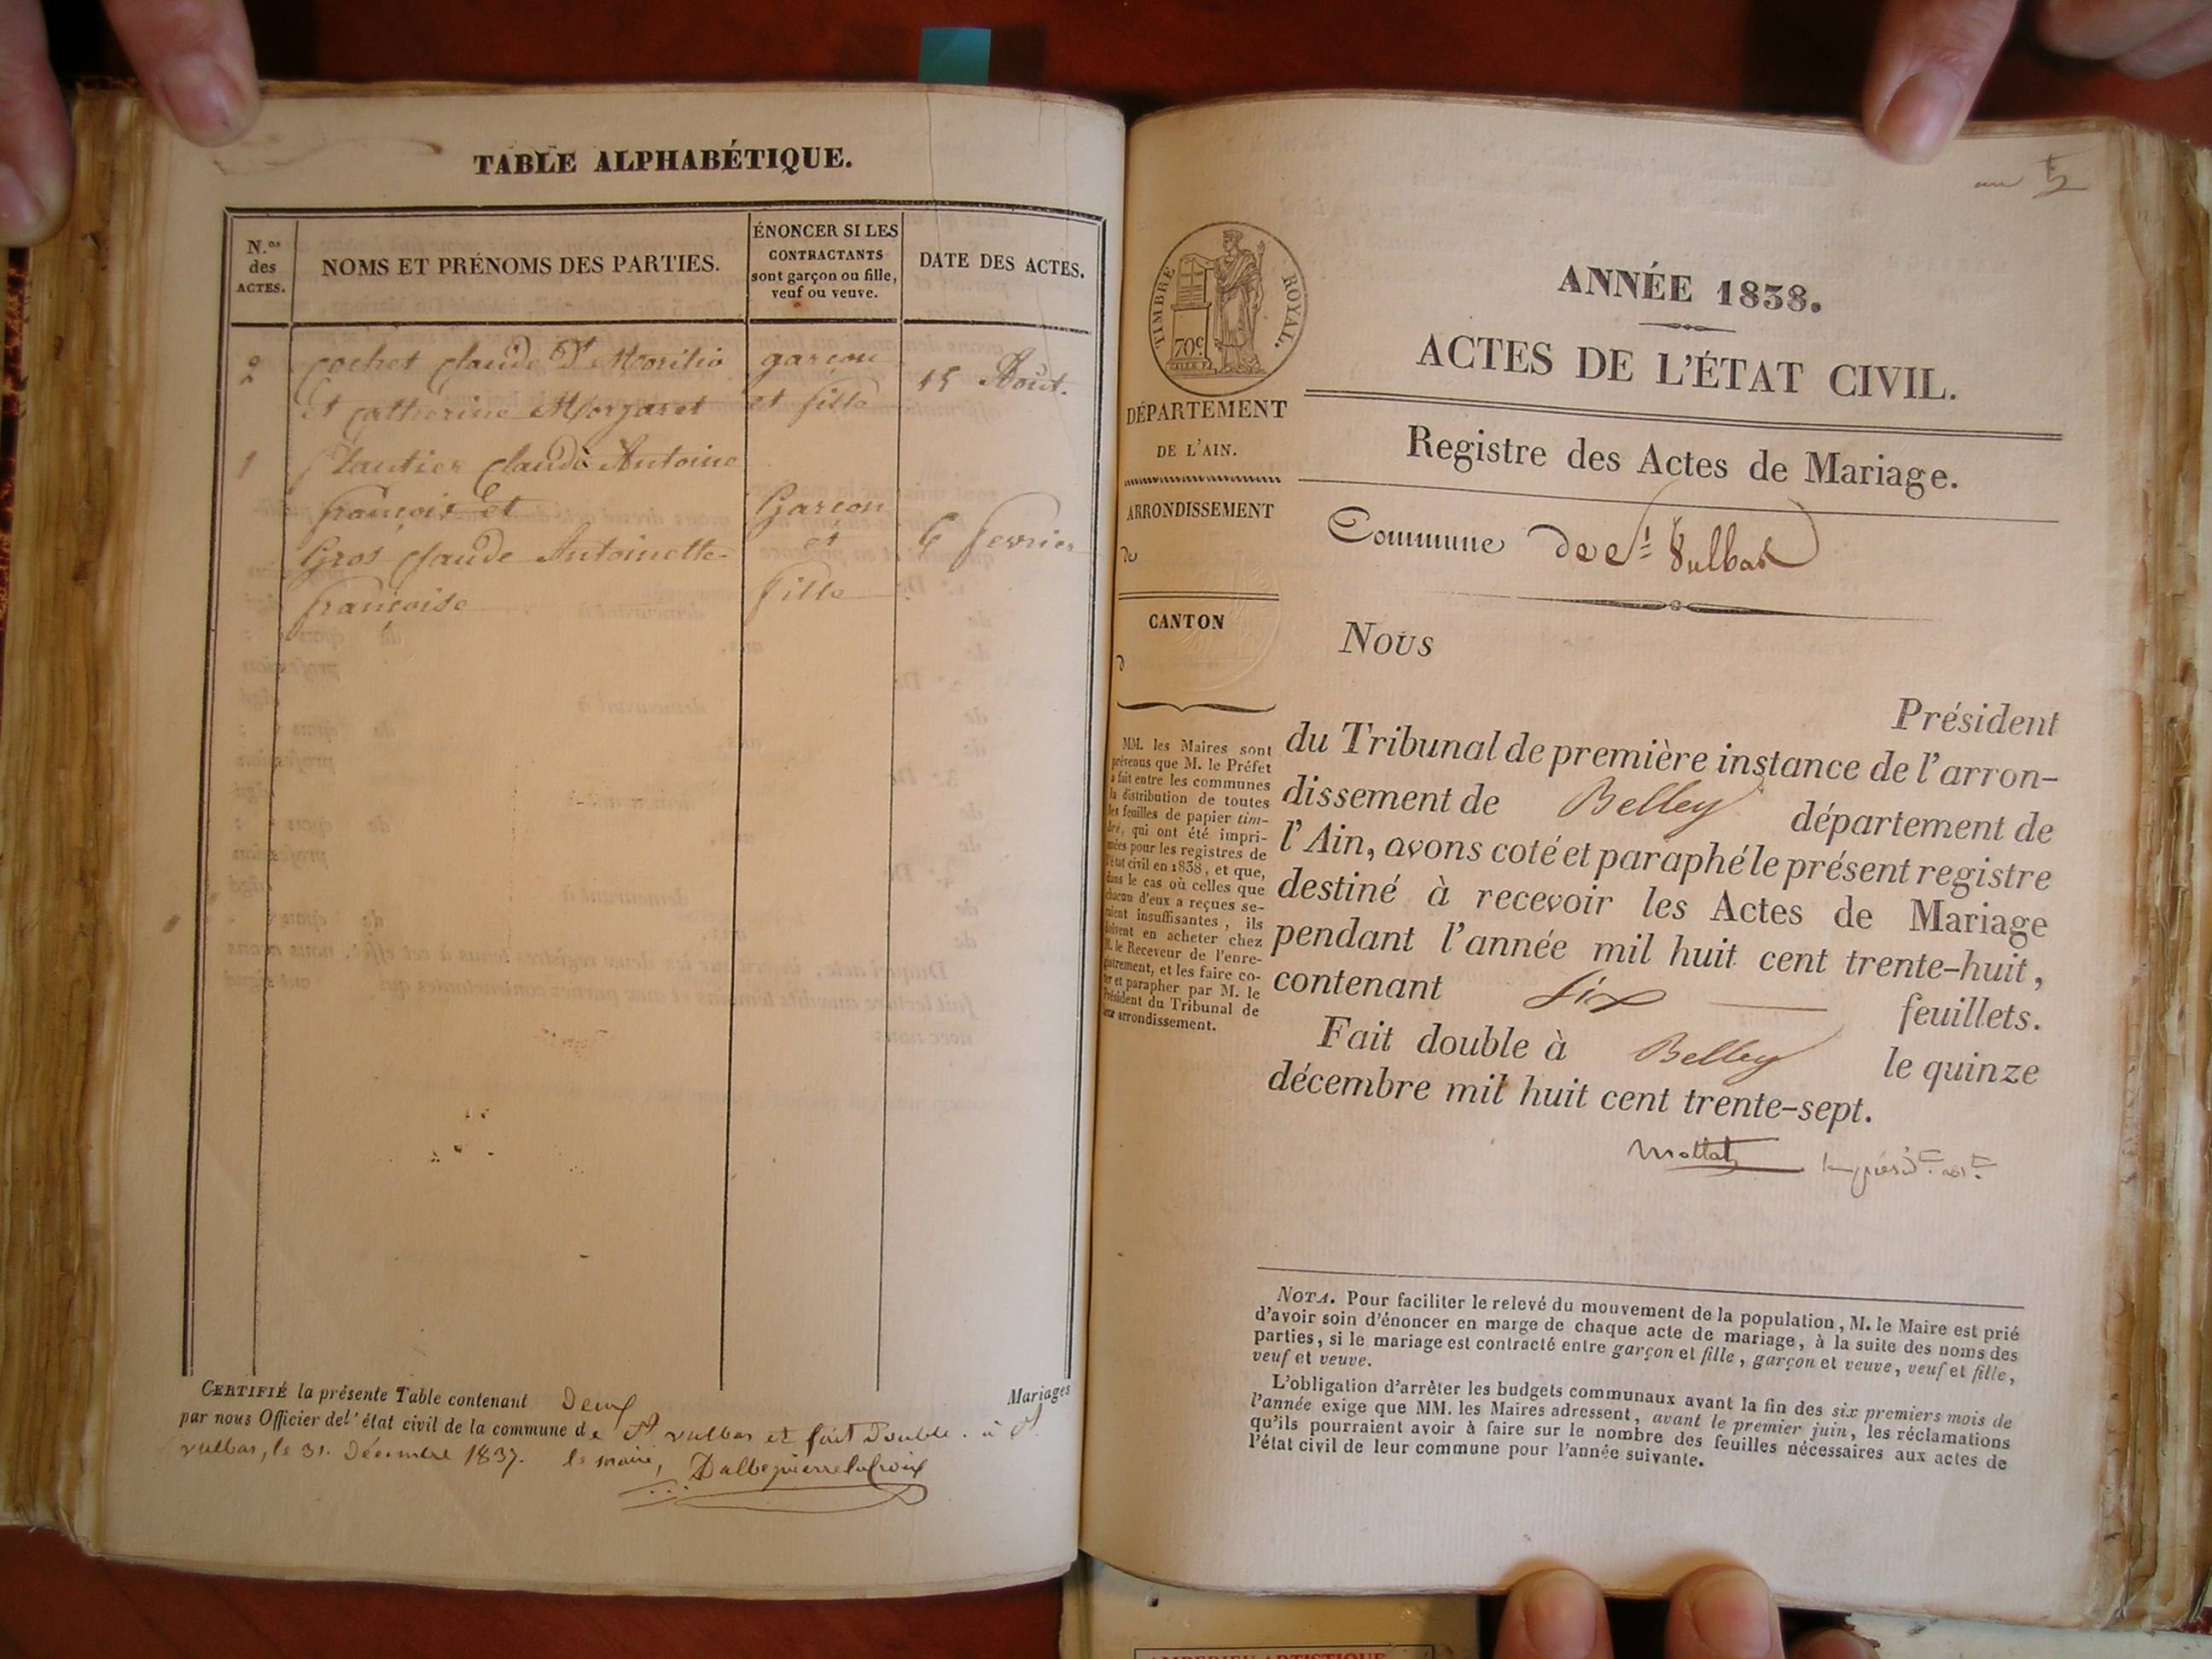 TABLE ALPHABÉTIQUE.
N.os des ACTES.
NOMS ET PRÉNOMS DES PARTIES.
ÉNONCER SI LES CONTRACTANTS sont garçon ou fille, veuf ou veuve.
DATE DES ACTES.
2 Cochet Claude garçon 15 Août.
et Catherine et fille
1 Claude Antoine
françois et Garçon
Gros Claude Antoinette et 6 fevrier
françoise fille
CERTIFIÉ la présente Table contenant Deux Mariages
par nous Officier del'état civil de la commune de St vulbas et fait double. à St
vulbas, le 31. Décembre 1837. le maire,
ANNÉE 1838.
ACTES DE L'ÉTAT CIVIL.
Registre des Actes de Mariage.
Commune de St Vulbas
TIMBRE ROYAL.
70c
DÉPARTEMENT
DE L'AIN.
ARRONDISSEMENT
de
CANTON
d
MM. les Maires sont
prévenus que M. le Préfet
a fait entre les communes
la distribution de toutes
les feuilles de papier tim-
bré, qui ont été impri-
mées pour les registres de
l'état civil en 1838, et que,
dans le cas où celles que
chacun d'eux a reçues se-
raient insuffisantes, ils
doivent en acheter chez
M. le Receveur de l'enre-
gistrement, et les faire co-
ter et parapher par M. le
Président du Tribunal de
leur arrondissement.
Nous
Président
du Tribunal de première instance de l'arron-
dissement de Belley département de
l'Ain, avons coté et paraphé le présent registre
destiné à recevoir les Actes de Mariage
pendant l'année mil huit cent trente-huit,
contenant six feuillets.
Fait double à Belley le quinze
décembre mil huit cent trente-sept.
NOTA. Pour faciliter le relevé du mouvement de la population, M. le Maire est prié
d'avoir soin d'énoncer en marge de chaque acte de mariage, à la suite des noms des
parties, si le mariage est contracté entre garçon et fille, garçon et veuve, veuf et fille,
veuf et veuve.
L'obligation d'arrêter les budgets communaux avant la fin des six premiers mois de
l'année exige que MM. les Maires adressent, avant le premier juin, les réclamations
qu'ils pourraient avoir à faire sur le nombre des feuilles nécessaires aux actes de
l'état civil de leur commune pour l'année suivante.